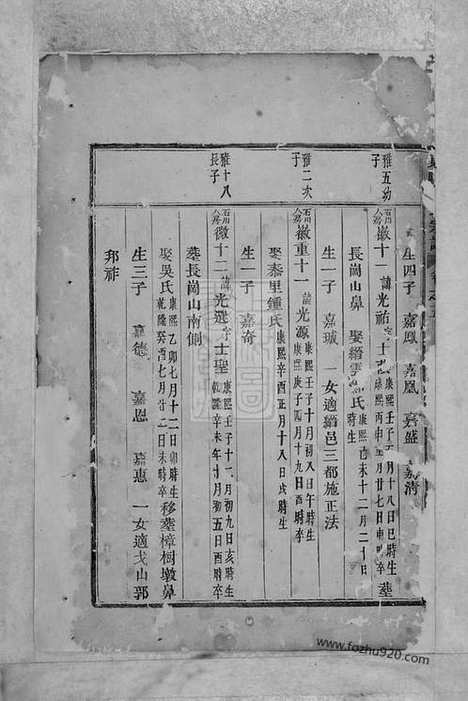 生四子 嘉鳳 嘉凰 嘉盛 嘉淸
雅五幼子
徽十一 諱光祐 字士 康熙壬子五月十八日巳時生 康熙丙申 月廿七日申時卒 塟
長崗山鼻 娶縉雲 氏 康熙 未十二月二十日 時生
生一子 嘉珹 一女適縉邑三都施正法
雅二次子
徽重十一 諱光源 康熙壬子十月初八日午時生 康熙庚子四月十九日亥時卒
娶泰里鍾氏 康熙辛酉正月十八日戌時生
生一子 嘉奇
雅十八長子
徽十二 諱光選 字士聖 康熙壬子十二月初九日亥時生 乾隆辛未年 月初五日酉時卒
塟長崗山南側
娶吳氏 康熙乙卯七月十二日卯時生 乾隆癸酉七月廿二日未時卒 移塟樟樹墩鼻
生三子 嘉德 嘉恩 嘉惠 一女適戈山郭
邦祚
www.fozhu920.com